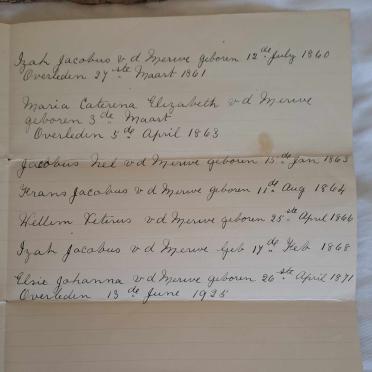 Izak Jacobus v d Merwe geboren 12de July 1860
Overleden 27ste Maart 1861
Maria Caterina Elizabeth v d Merwe
geboren 3de Maart
Overleden 5de April 1863
Jacobus Nel v d Merwe geboren 15de Jan 1863
Frans Jacobus v d Merwe geboren 11de Aug 1864
Willem Peterus v d Merwe geboren 25ste April 1866
Izak Jacobus v d Merwe Geb 17de Feb 1868
Elsie Johanna v d Merwe geboren 26ste April 1871
Overleden 13de June 1935